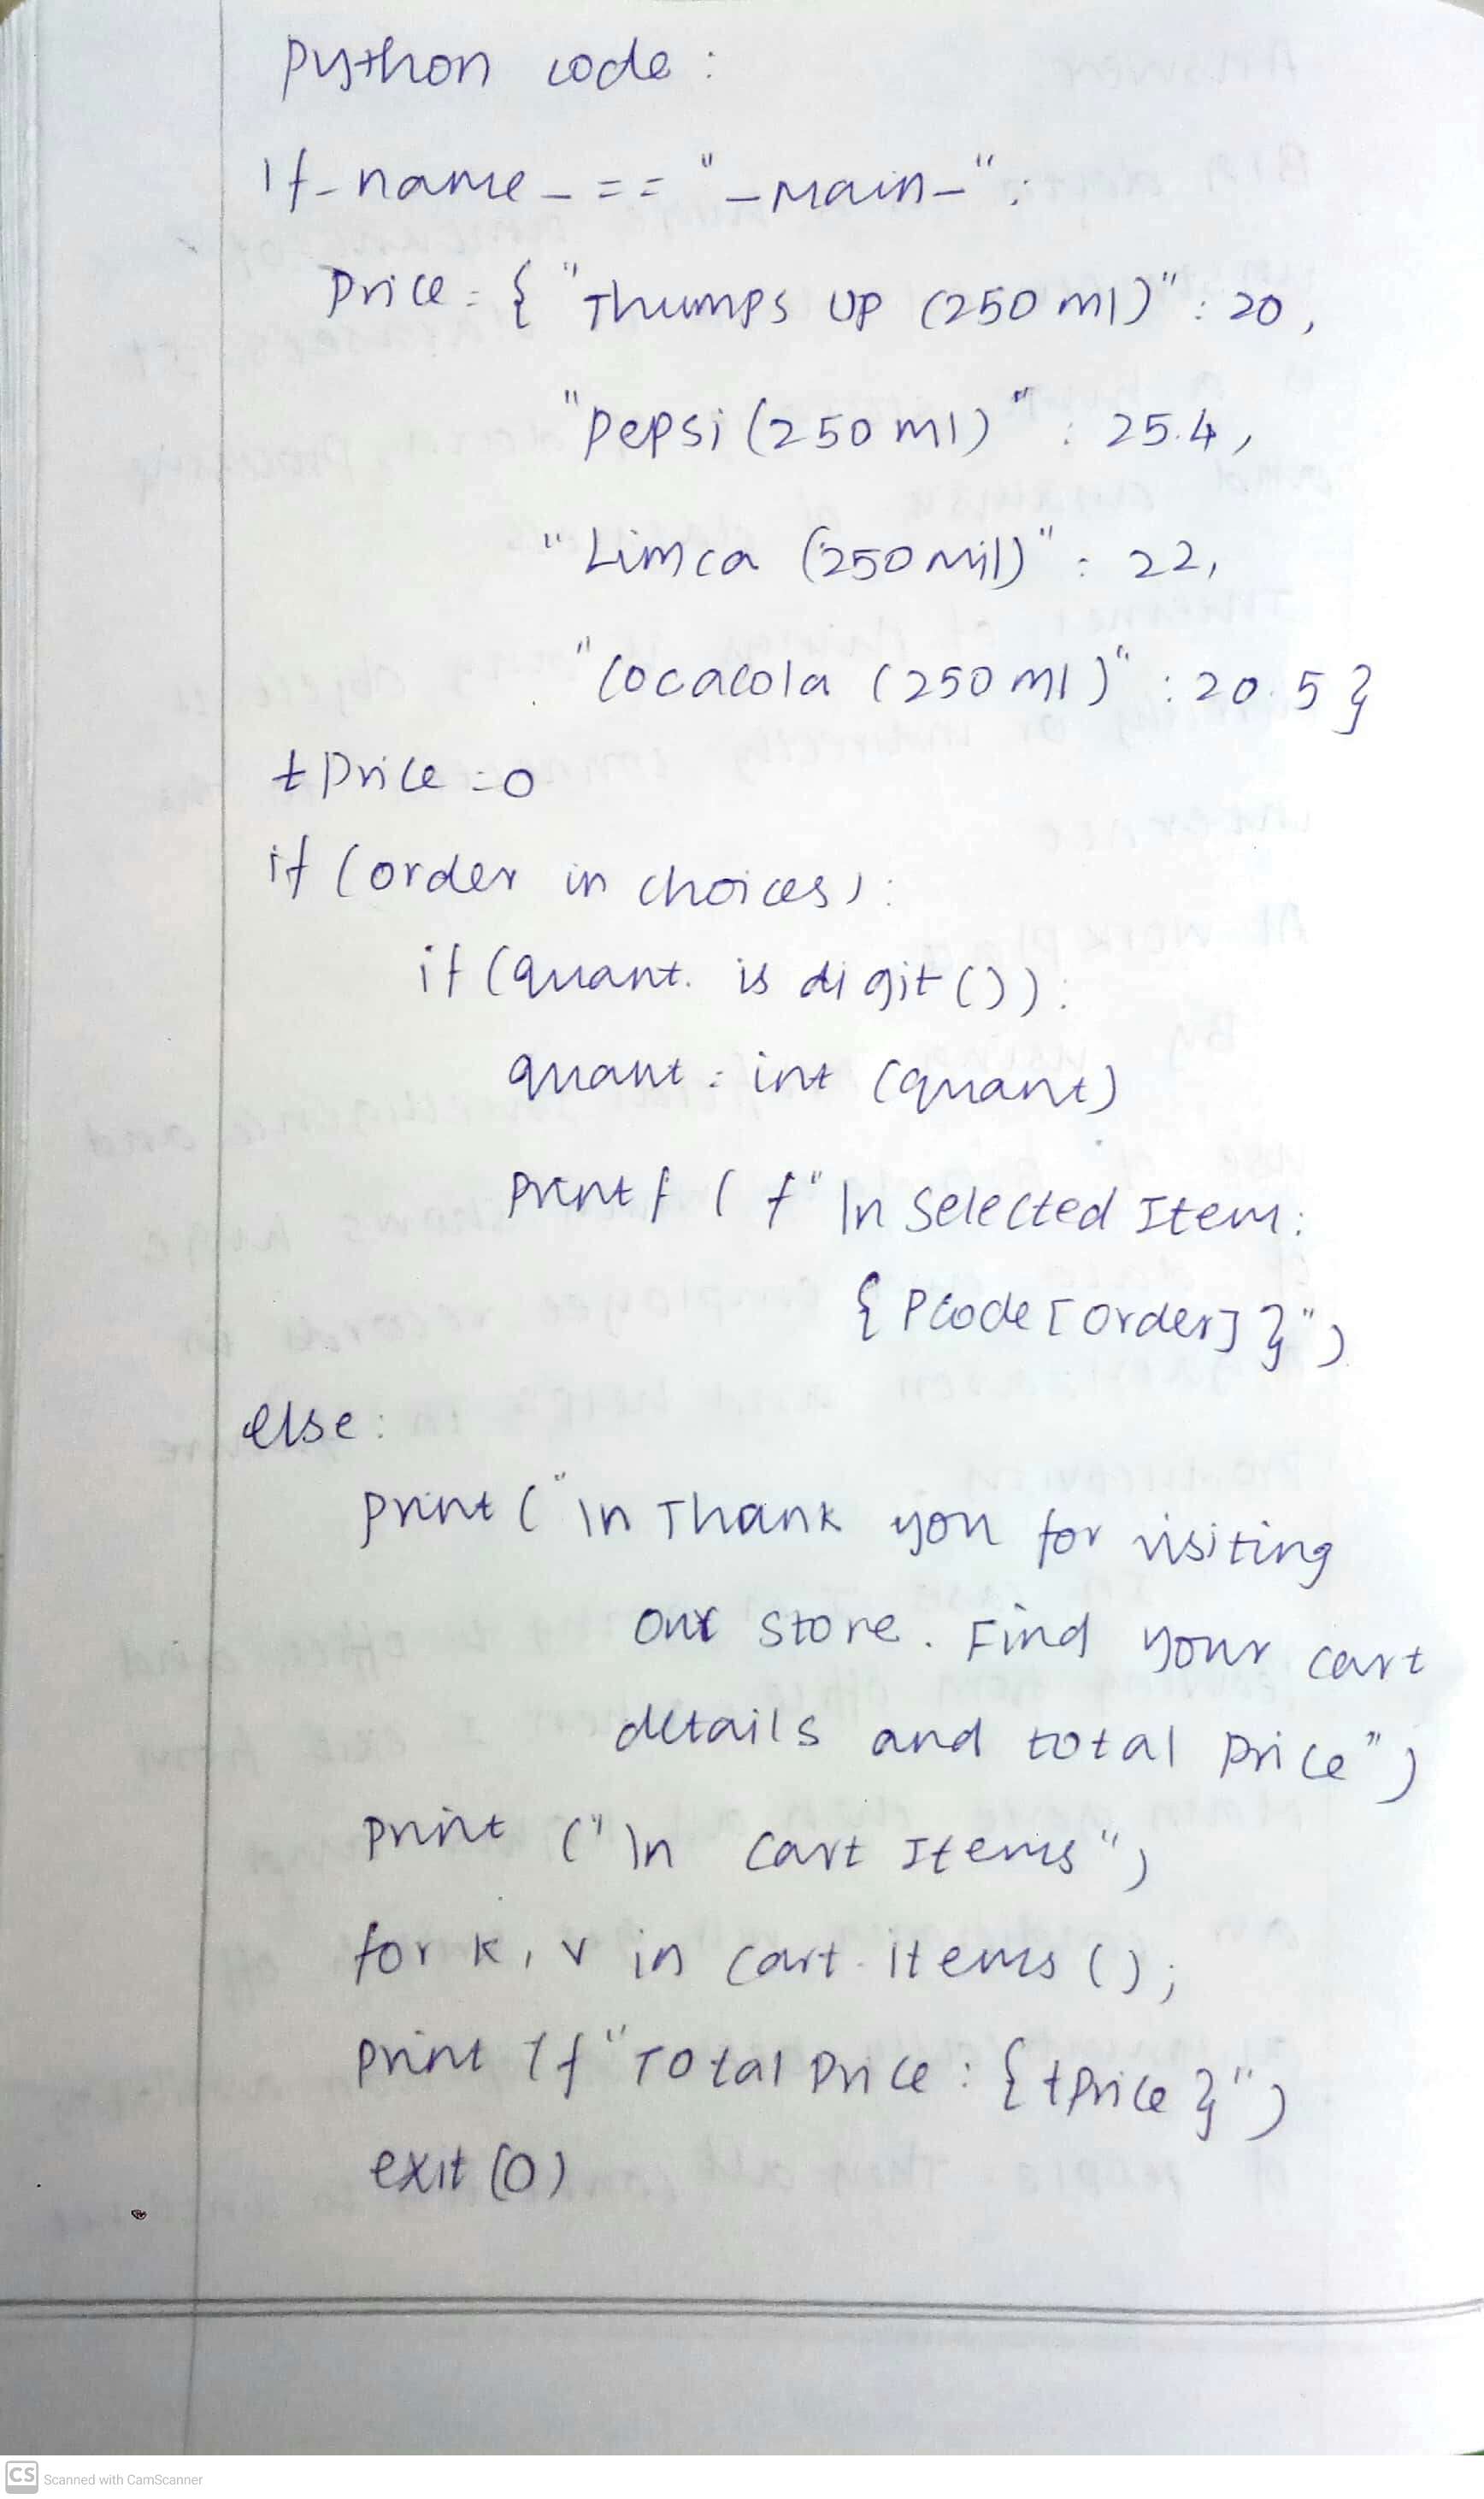 Python code :
If _ name _ == "_ Main _" :
Price = { "Thumps UP (250 ml)" : 20 ,
"Pepsi (250 ml)" : 25.4 ,
"Limca (250 mil)" : 22 ,
"Cocacola (250 ml)" : 20.5 }
tPrice = 0
if (order in choices) :
if (quant. is digit ()) :
quant = int (quant)
Printf ( f" \n Selected Item :
{ Pcode [order] }" )
else :
print ( "\n Thank you for visiting
our store . Find your cart
details and total Price" )
print ("\n Cart Items" )
for k , v in cart . items () ;
print (f "Total Price : { tPrice }" )
exit (0)
CS Scanned with CamScanner